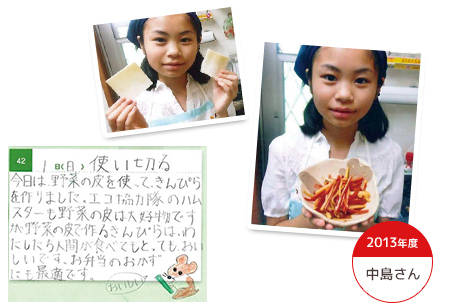 42
1日(月) 使い切る
今日は、野菜の皮を使って、きんぴら
を作りました。エコ協力隊のハム
スターも野菜の皮は大好物です
が、野菜の皮で作るきんぴらは、わ
たしたち人間が食べてもとっても、おい
しいです。お弁当のおかず
にも最適です。
おいしい
2013年度
中島さん